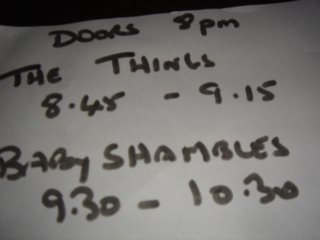 DOORS 8pm
THE THINGS
8.45 - 9.15
BABY SHAMBLES
9.30 - 10.30